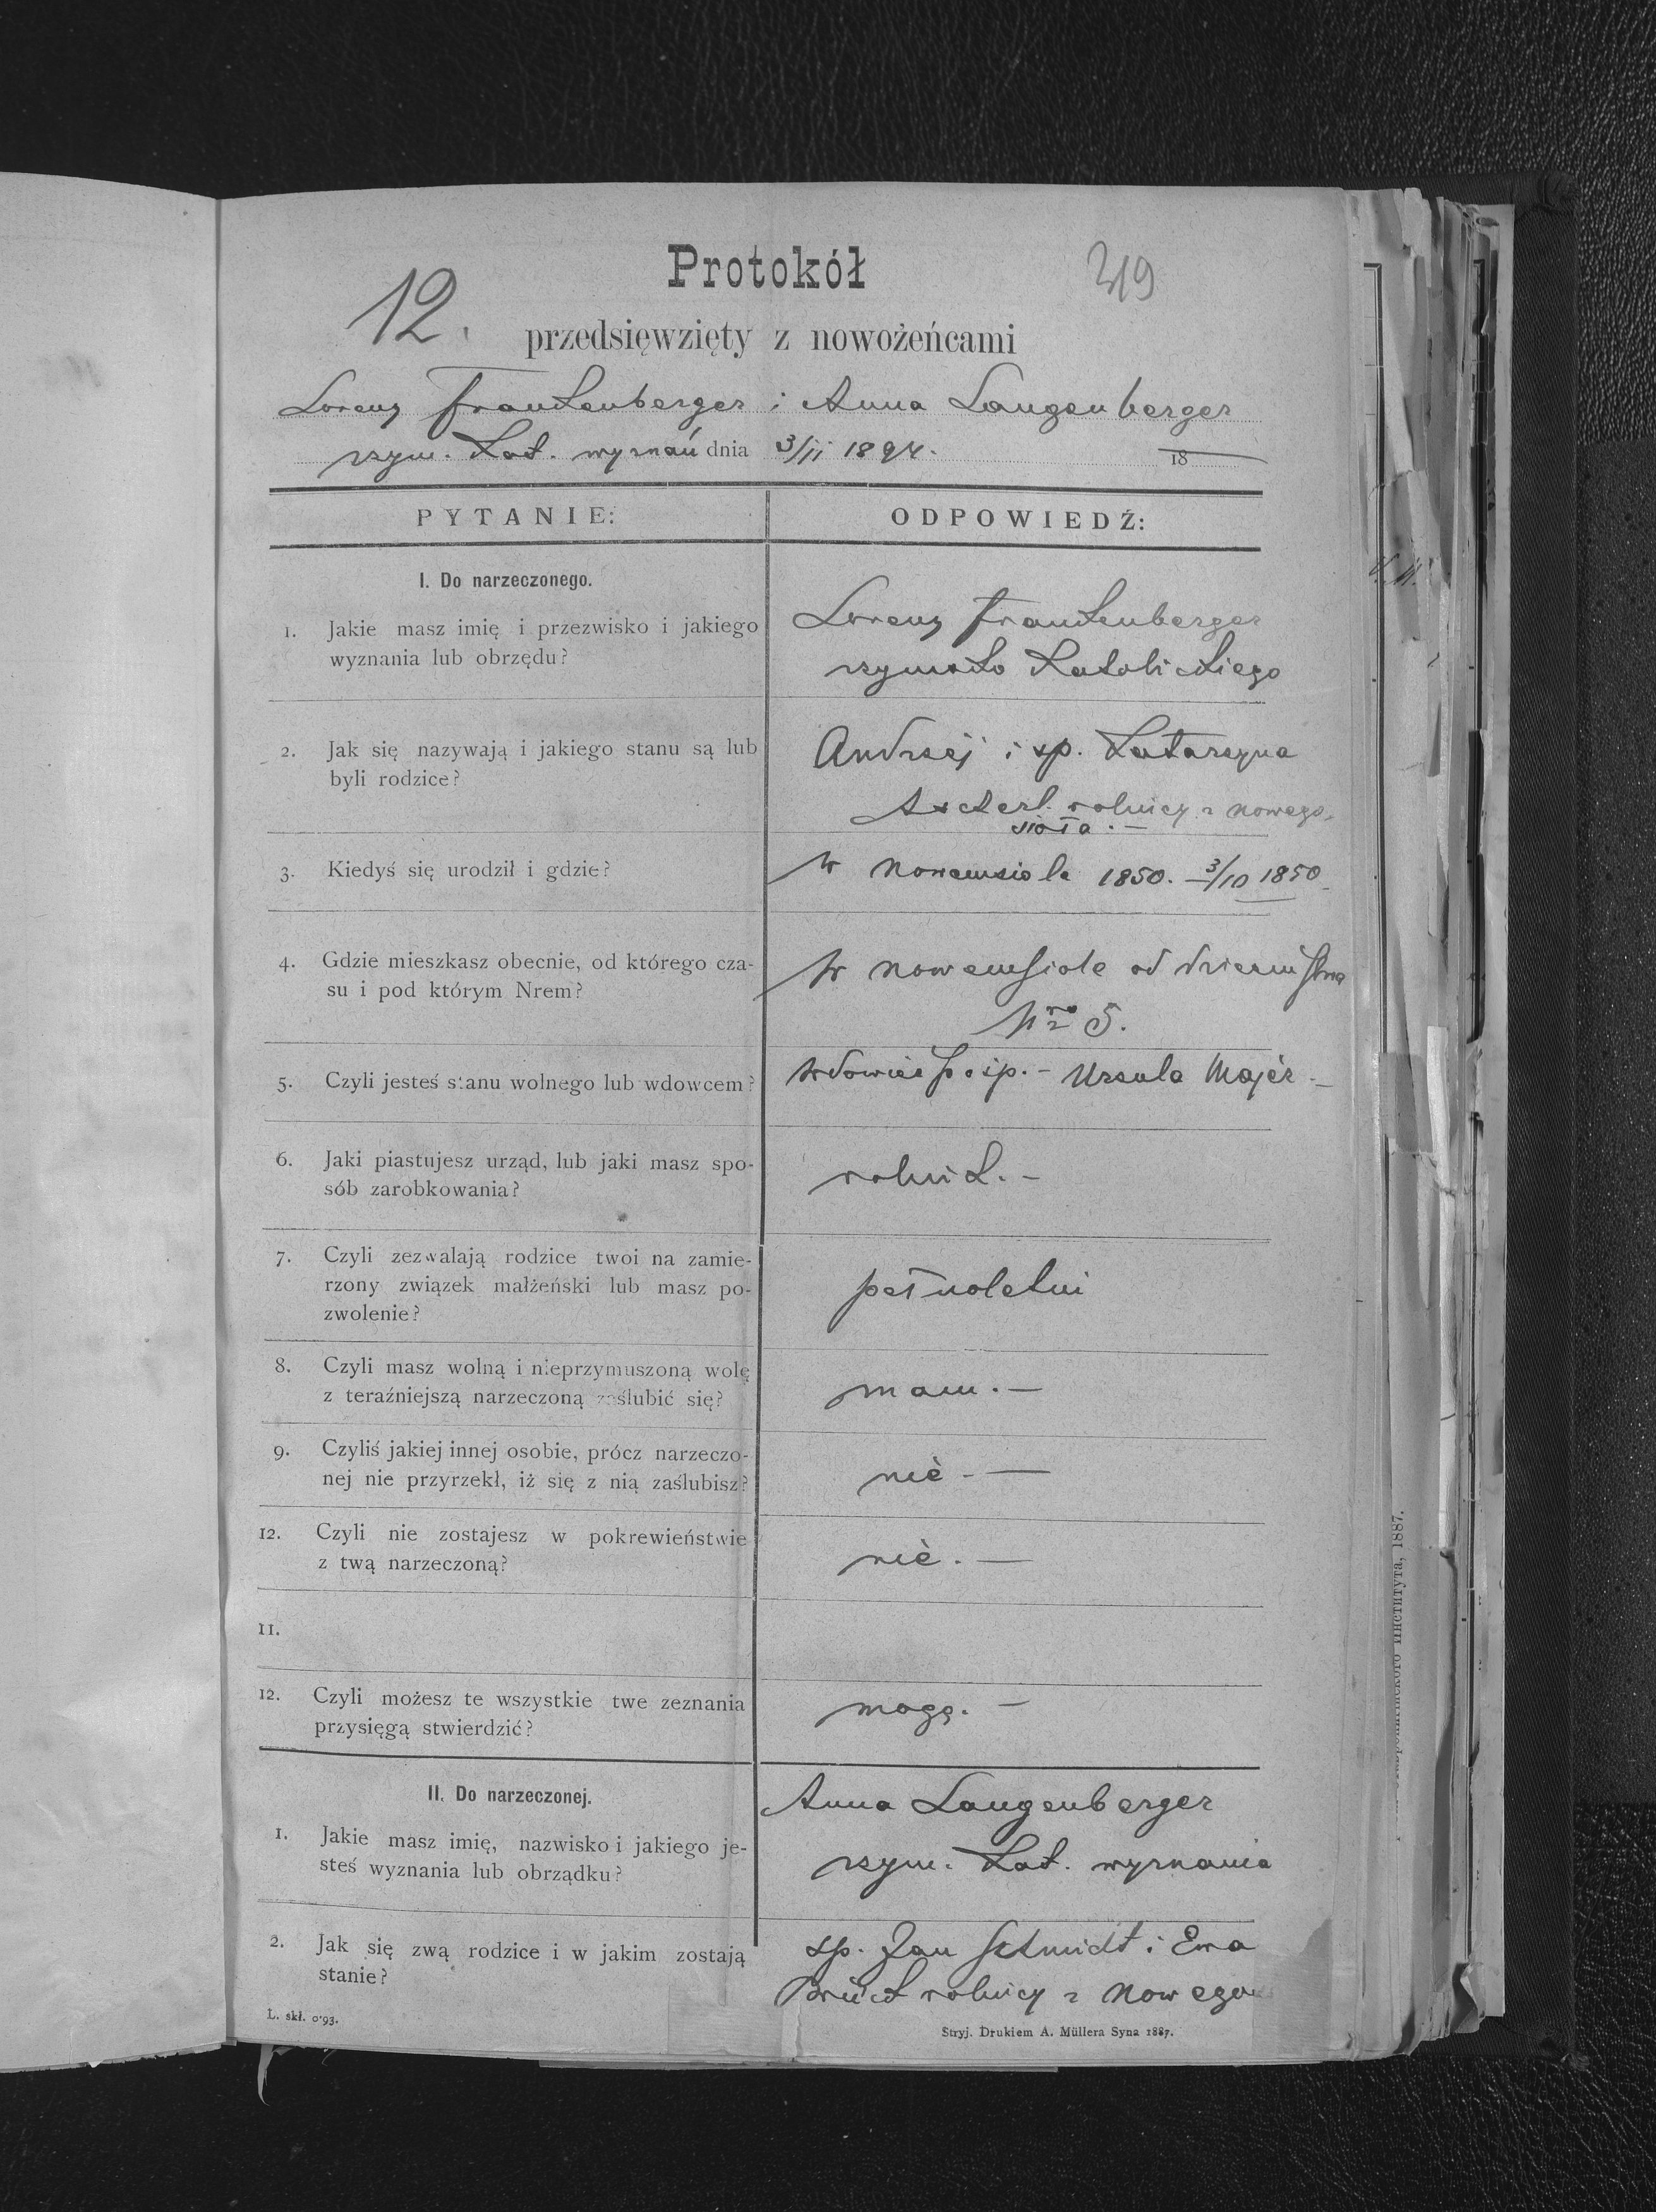 Protokół
12.
319
przedsięwzięty z nowożeńcami
Lorenz Frankenberger i Anna Langenberger
rzym. kat. wyznań dnia 3/II 1894. 18
PYTANIE:
ODPOWIEDŹ:
I. Do narzeczonego.
1. Jakie masz imię i przezwisko i jakiego
wyznania lub obrzędu?
Lorenz Frankenberger
rzymsko katolickiego
2. Jak się nazywają i jakiego stanu są lub
byli rodzice?
Andrzej i śp. Katarzyna
rolnicy z nowego
sioła. —
3. Kiedyś się urodził i gdzie?
w nowemsiole 1850. — 3/10 1850
4. Gdzie mieszkasz obecnie, od którego cza-
su i pod którym Nrem?
w nowemsiole od dzieciństwa
Nro 5.
5. Czyli jesteś stanu wolnego lub wdowcem?
wdowiec po śp. — Ursula Majer —
6. Jaki piastujesz urząd, lub jaki masz spo-
sób zarobkowania?
rolnik. —
7. Czyli zezwalają rodzice twoi na zamie-
rzony związek małżeński lub masz po-
zwolenie?
pełnoletni
8. Czyli masz wolną i nieprzymuszoną wolę
z teraźniejszą narzeczoną zaślubić się?
mam. —
9. Czyliś jakiej innej osobie, prócz narzeczo-
nej nie przyrzekł, iż się z nią zaślubisz?
nie. —
12. Czyli nie zostajesz w pokrewieństwie
z twą narzeczoną?
nie. —
11.
12. Czyli możesz te wszystkie twe zeznania
przysięgą stwierdzić?
mogę. —
II. Do narzeczonej.
1. Jakie masz imię, nazwisko i jakiego je-
steś wyznania lub obrządku?
Anna Langenberger
rzym. kat. wyznania
2. Jak się zwą rodzice i w jakim zostają
stanie?
śp. Jan Schmidt i Ewa
rolnicy z nowego
L. skł. 0·93.
Stryj. Drukiem A. Müllera Syna 1887.
Института, 1887.